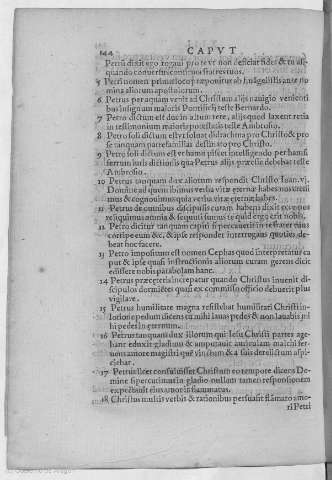 144 CAPVT
Petrū dixit ego rogaui pro te vt non deficiat fides & tu ali-
quando conuersus confirma fratres tuos.
5 Petri nomen primo loco ponitur ab euāgelistis ante no
mina aliorum apostolorum.
6 Petrus per aquam venit ad Christum aliis nauigio venienti
bus insignum maioris Pontificij teste Bernardo.
7 Petro dictum est duc in altum rete, aliis quod laxent retia
in testimonium maioris potestatis teste Ambrosio.
8 Petro soli dictum est vt soluat didrachma pro Christo & pro
se tanquam patre familias destinato pro Christo.
9 Petro soli dictum est vt hamo piscet intelligendo per hamū
ferrum iuris qua Petrus aliis præesse debebat teste
Ambrosio.
10 Petrus tanquam dux aliorum respondit Christo Ioan. vj.
Domine ad quem ibimus verba vitæ æternæ habes nos credi
mus & cognouimus quia verba vitæ æternæ habes.
11 Petrus de omnibus discipulis curam habens dixit ecce nos
reliquimus omnia & sequuti sumus te quid ergo erit nobis.
12 Petro dicitur tanquam capiti si peccauerit in te frater tuus
corripe eum &c. & ipse respondet interrogans quoties de-
beat hoc facere.
13 Petro impositum est nomen Cephas quod interpretatur ca
put & ipse quasi instructionis aliorum curam gerens dicit
edissere nobis parabolam hanc.
14 Petrus præceteris increpatur quando Christus inuenit di-
scipulos dormiētes quasi ex commisso officio debuerit plus
vigilare.
15 Petrus humilitate magna resistebat humilitati Christi in
lotione pedum dicens tu mihi lauas pedes & non lauabis mi
hi pedes in æternum.
16 Petrus tanquam dux illorum qui Iesu Christi partes age-
bant eduxit gladium & amputauit auriculam malchi fer-
uens amore magistri quē vinctum & a suis derelictum aspi-
ciebat.
17 Petrus licet consuluisset Christum eo tempore dicens Do-
mine si percutimus in gladio nullam tamen responsionem
expectauit eius amoris
18 Christus multis verbis & rationibus persuasit amo-
ri Petri